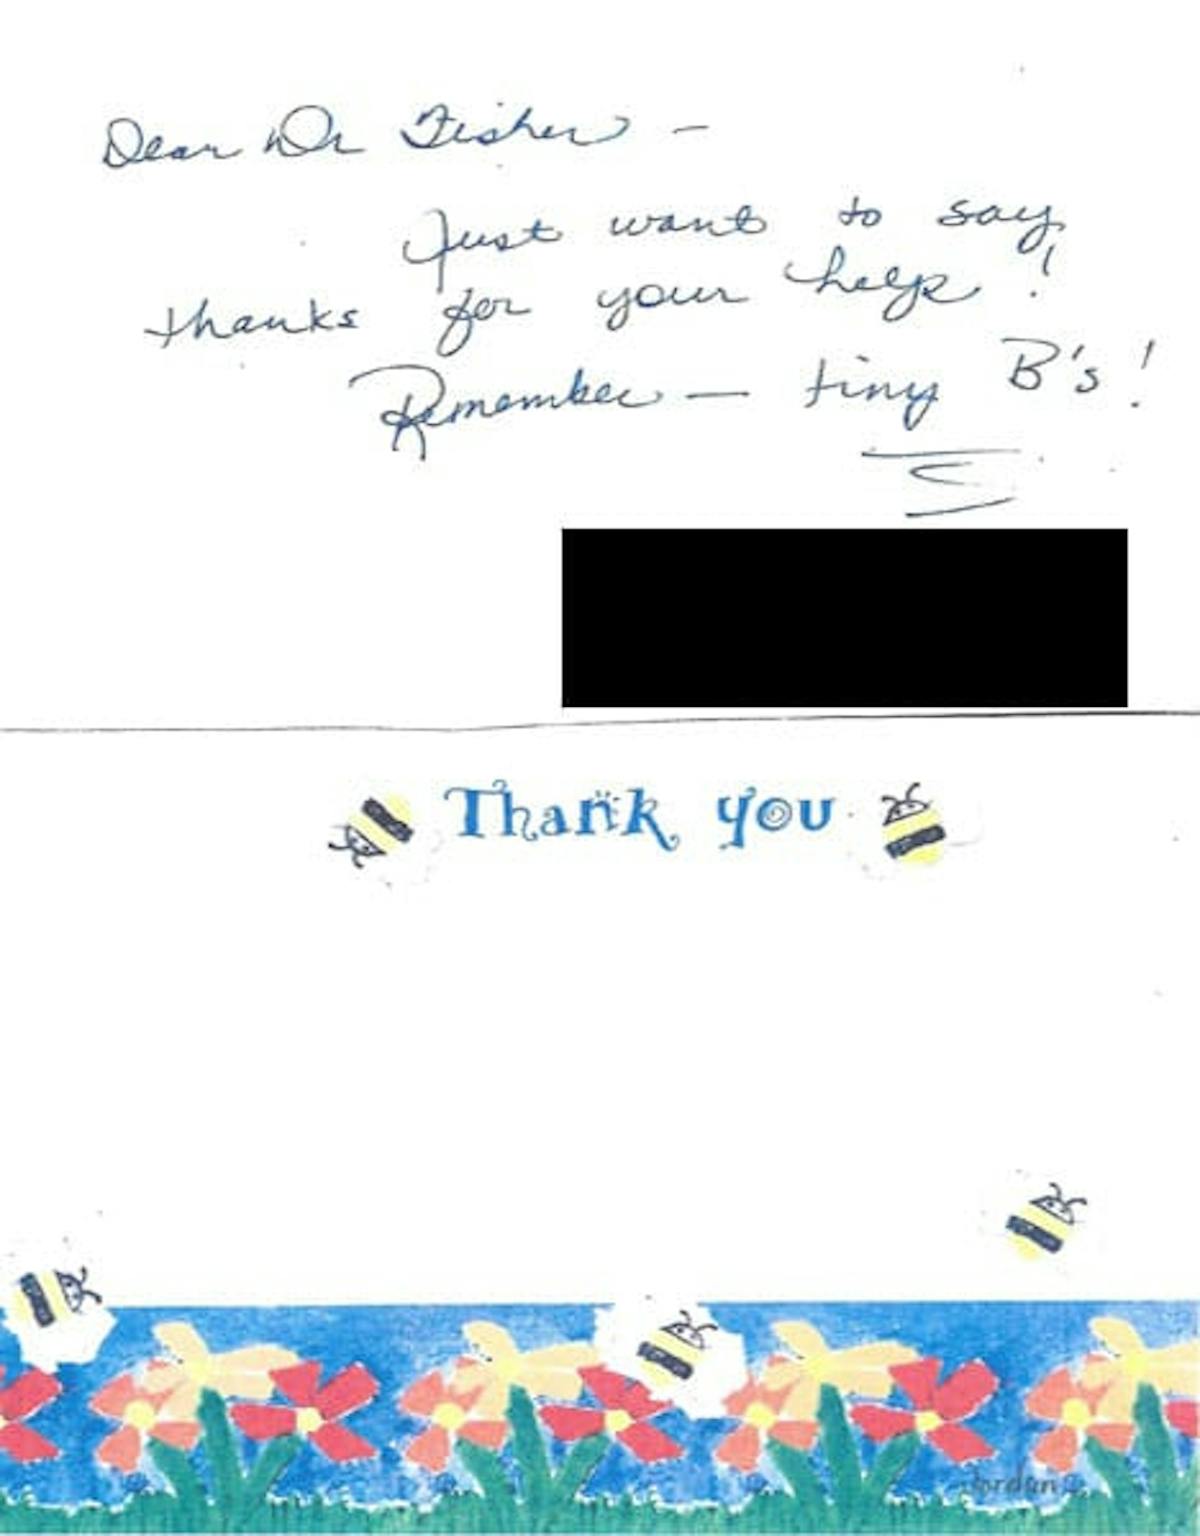 Dear Dr Fisher —
Just want to say
thanks for your help!
Remember — tiny B's!
Thank you
Jordan